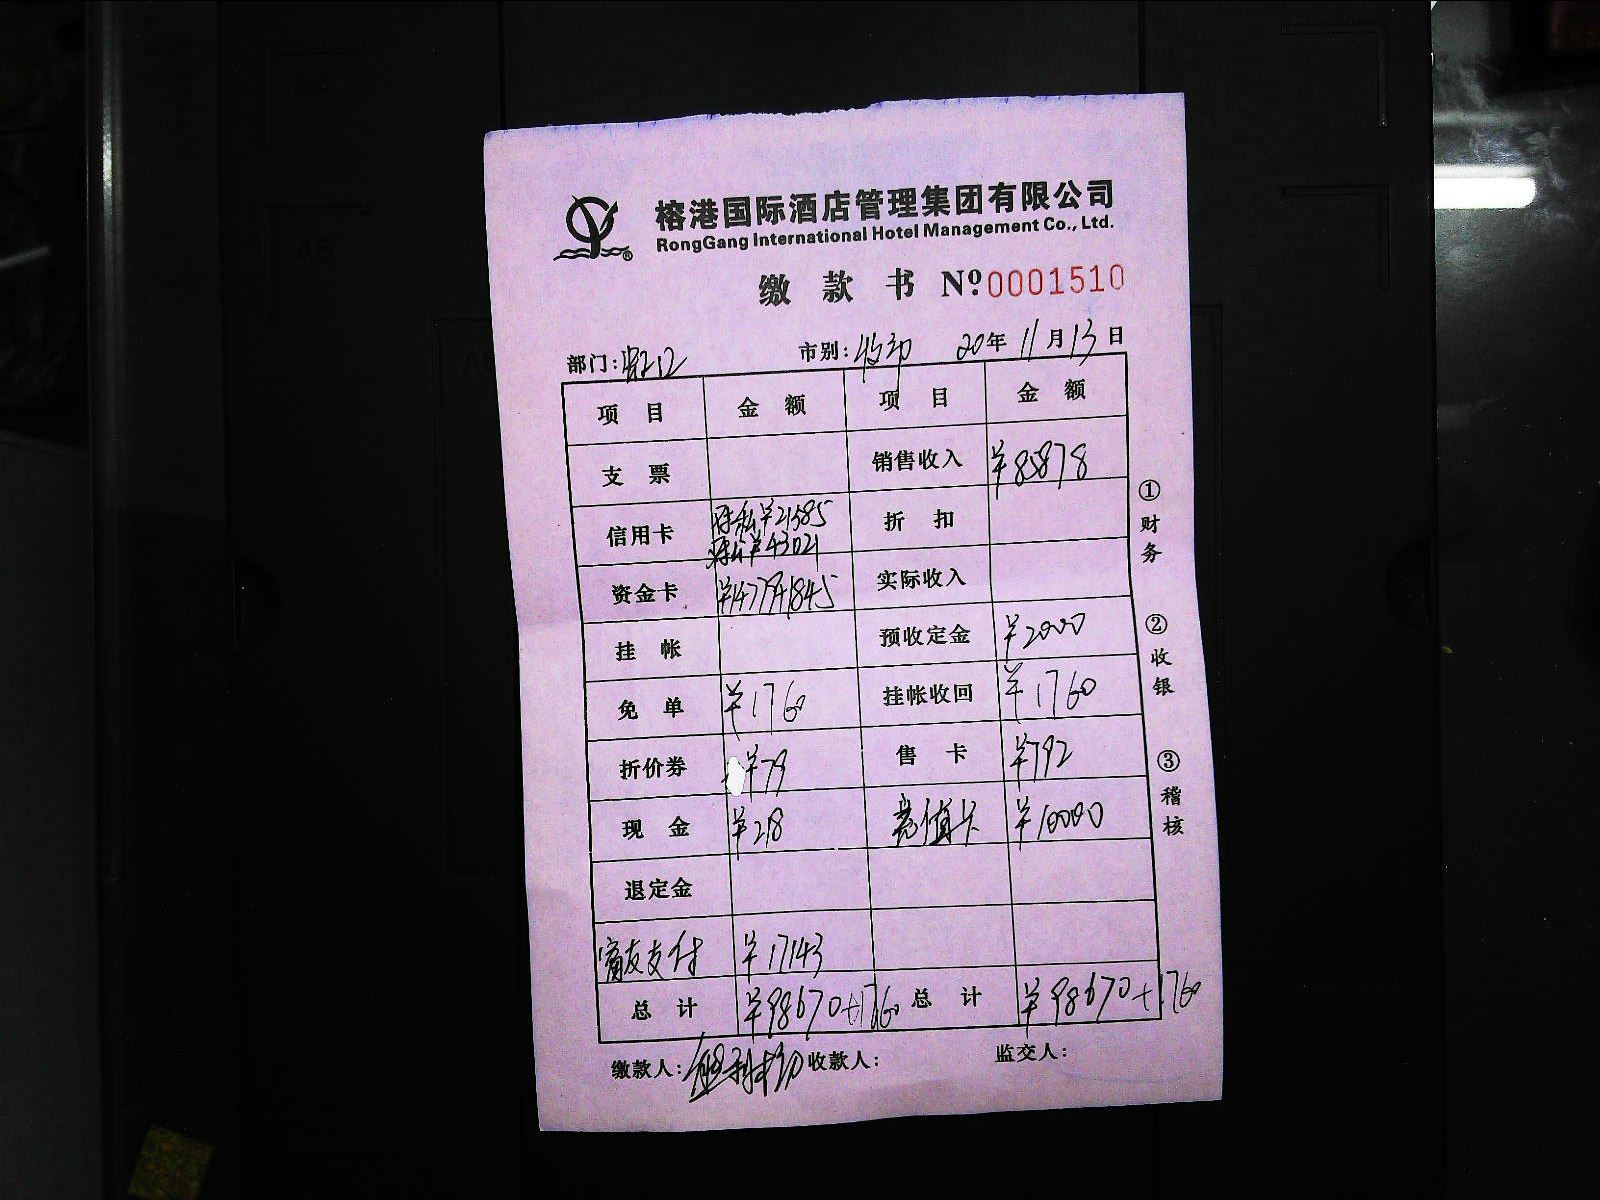 榕港国际酒店管理集团有限公司
RongGang International Hotel Management Co., Ltd.
缴 款 书 Nº 0001510
部门: 市别: 20年 11月 13日
项 目 金 额 项 目 金 额
支 票 销售收入 ¥85878
信用卡 ¥21585 折 扣
¥43021
资金卡 实际收入
挂 帐 预收定金 ¥2000
免 单 ¥1760 挂帐收回 ¥1760
折价券 ¥79 售 卡 ¥792
现 金 ¥218 充值卡 ¥10000
退定金
支付 ¥17143
总 计 ¥98670+1760 总 计 ¥98670+1760
缴款人: 收款人: 监交人:
①财务
②收银
③稽核